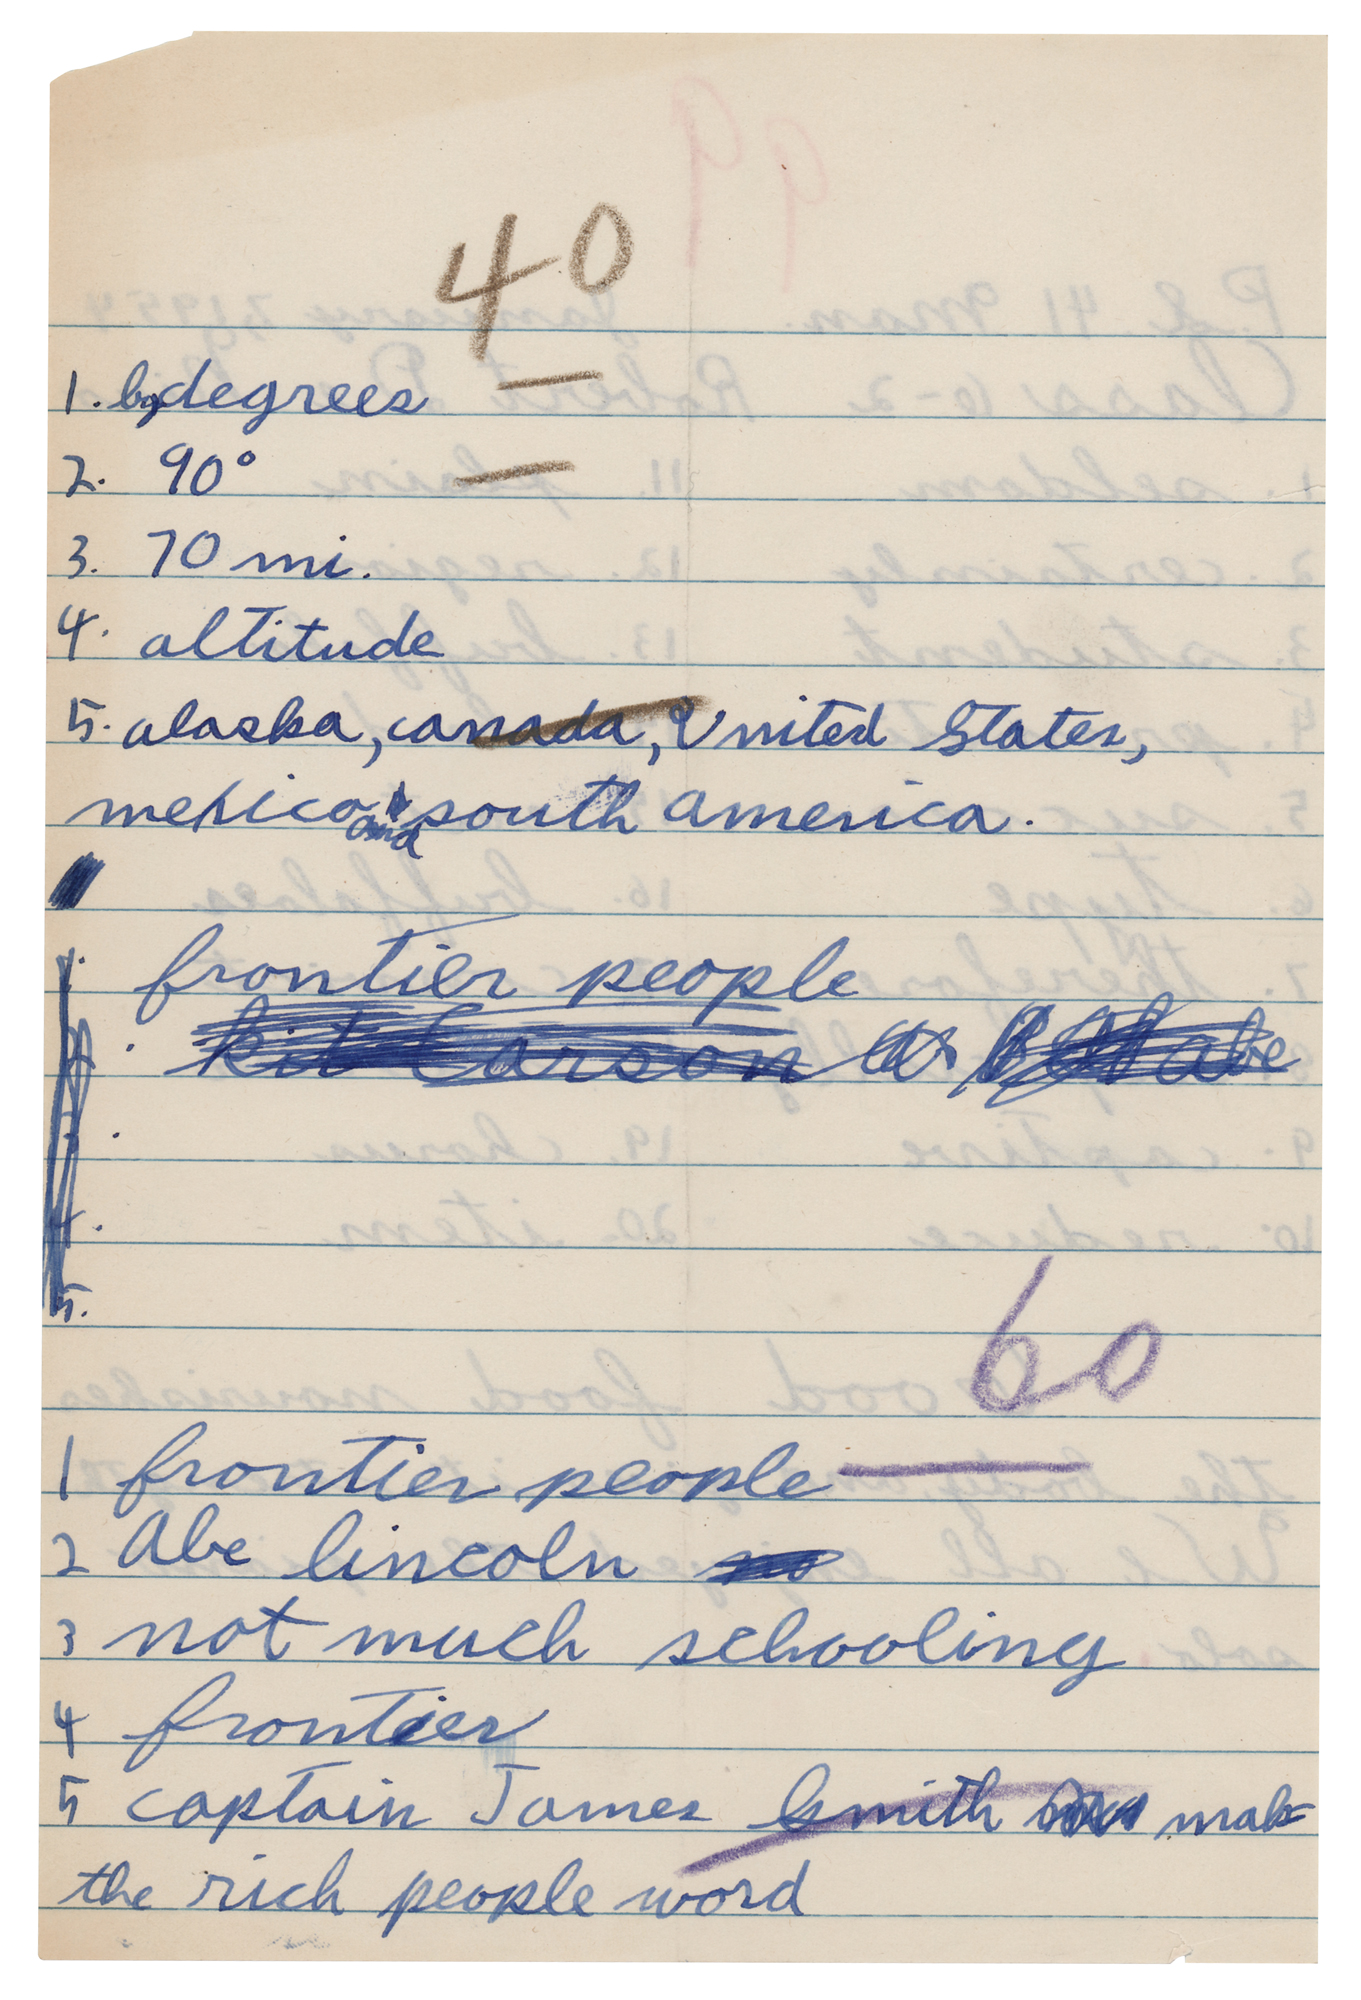 40
1. by degrees
2. 90°
3. 70 mi.
4. altitude
5. alaska, canada, United States,
mexico and south america.
1. frontier people
kit Carson
4.
5.
60
1 frontier people
2 Abe lincoln
3 not much schooling
4 frontier
5 captain James Smith mak
the rich people word